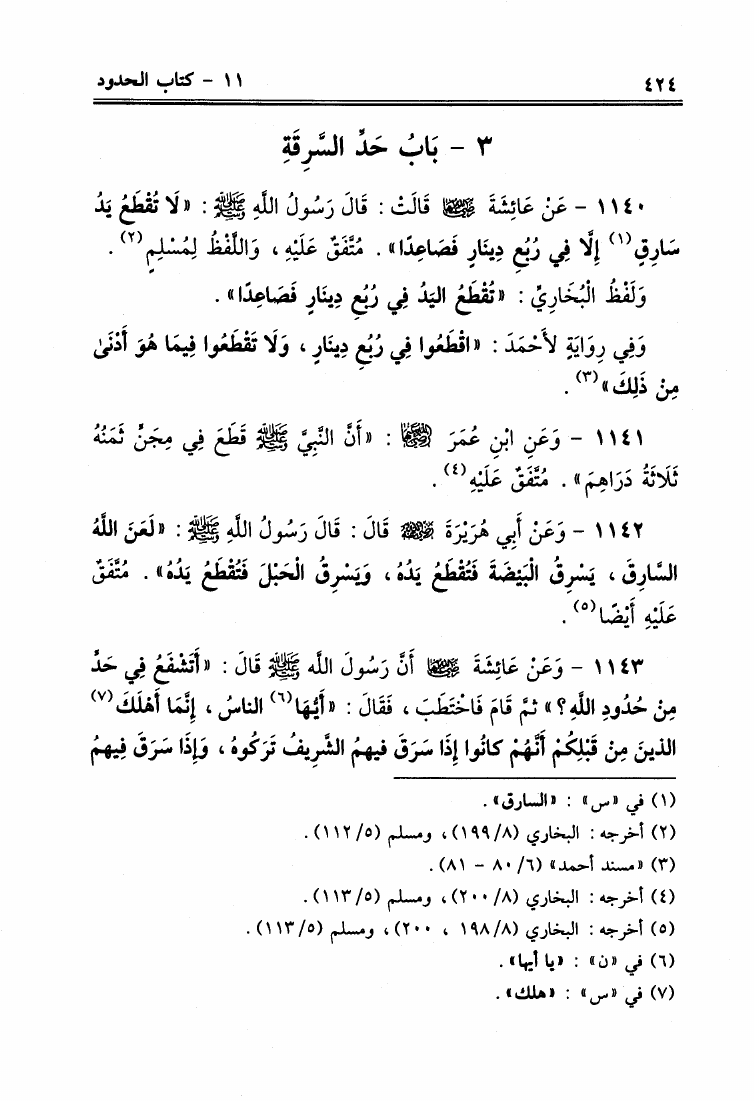 ٤٢٤ ١١ - كتاب الحدود
٣ - بَابُ حَدِّ السَّرِقَةِ
١١٤٠ - عَنْ عَائِشَةَ ﵂ قَالَتْ: قَالَ رَسُولُ اللَّهِ ﷺ: «لَا تُقْطَعُ يَدُ
سَارِقٍ(١) إِلَّا فِي رُبُعِ دِينَارٍ فَصَاعِدًا». مُتَّفَقٌ عَلَيْهِ، وَاللَّفْظُ لِمُسْلِمٍ(٢).
وَلَفْظُ الْبُخَارِيِّ: «تُقْطَعُ اليَدُ فِي رُبُعِ دِينَارٍ فَصَاعِدًا».
وَفِي رِوَايَةٍ لأَحْمَدَ: «اقْطَعُوا فِي رُبُعِ دِينَارٍ، وَلَا تَقْطَعُوا فِيمَا هُوَ أَدْنَىٰ
مِنْ ذَلِكَ»(٣).
١١٤١ - وَعَنِ ابْنِ عُمَرَ ﵄: «أَنَّ النَّبِيَّ ﷺ قَطَعَ فِي مِجَنٍّ ثَمَنُهُ
ثَلَاثَةُ دَرَاهِمَ». مُتَّفَقٌ عَلَيْهِ(٤).
١١٤٢ - وَعَنْ أَبِي هُرَيْرَةَ ﵁ قَالَ: قَالَ رَسُولُ اللَّهِ ﷺ: «لَعَنَ اللَّهُ
السَّارِقَ، يَسْرِقُ الْبَيْضَةَ فَتُقْطَعُ يَدُهُ، وَيَسْرِقُ الْحَبْلَ فَتُقْطَعُ يَدُهُ». مُتَّفَقٌ
عَلَيْهِ أَيْضًا(٥).
١١٤٣ - وَعَنْ عَائِشَةَ ﵂ أَنَّ رَسُولَ الله ﷺ قَالَ: «أَتَشْفَعُ فِي حَدٍّ
مِنْ حُدُودِ اللَّهِ؟» ثمَّ قَامَ فَاخْتَطَبَ، فَقَالَ: «أَيُّهَا(٦) الناسُ، إِنَّمَا أَهْلَكَ(٧)
الذينَ مِنْ قَبْلِكُمْ أَنَّهُمْ كانُوا إِذَا سَرَقَ فيهِمُ الشَّرِيفُ تَرَكُوهُ، وَإِذَا سَرَقَ فِيهِمُ
(١) في «س»: «السارق».
(٢) أخرجه: البخاري (٨/١٩٩)، ومسلم (٥/١١٢).
(٣) «مسند أحمد» (٦/٨٠ - ٨١).
(٤) أخرجه: البخاري (٨/٢٠٠)، ومسلم (٥/١١٣).
(٥) أخرجه: البخاري (٨/١٩٨، ٢٠٠)، ومسلم (٥/١١٣).
(٦) في «ن»: «يا أيها».
(٧) في «س»: «هلك».